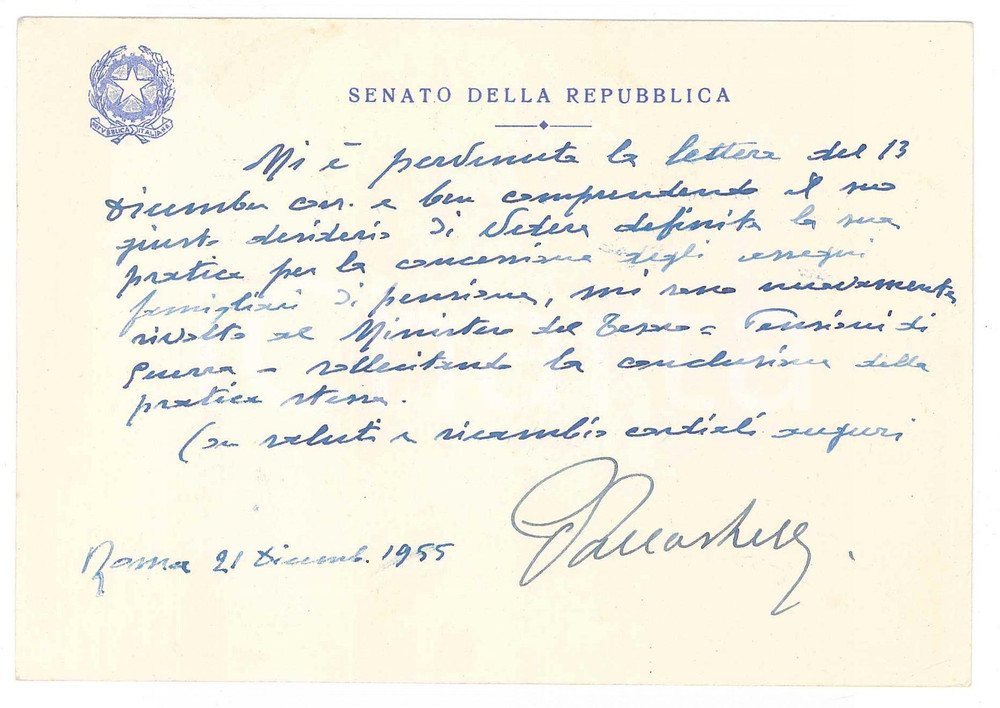 REPVBBLICA ITALIANA
SENATO DELLA REPUBBLICA
Mi è pervenuta la lettera del 13
Dicembre corr. e ben comprendendo il suo
giusto desiderio di vedere definita la sua
pratica per la concessione degli assegni
famigliari di pensione, mi sono nuovamente
rivolto al Ministero del Tesoro = Pensioni di
Guerra = sollecitando la conclusione della
pratica stessa.
Con saluti e ricambio cordiali auguri
Roma 21 Dicemb. 1955